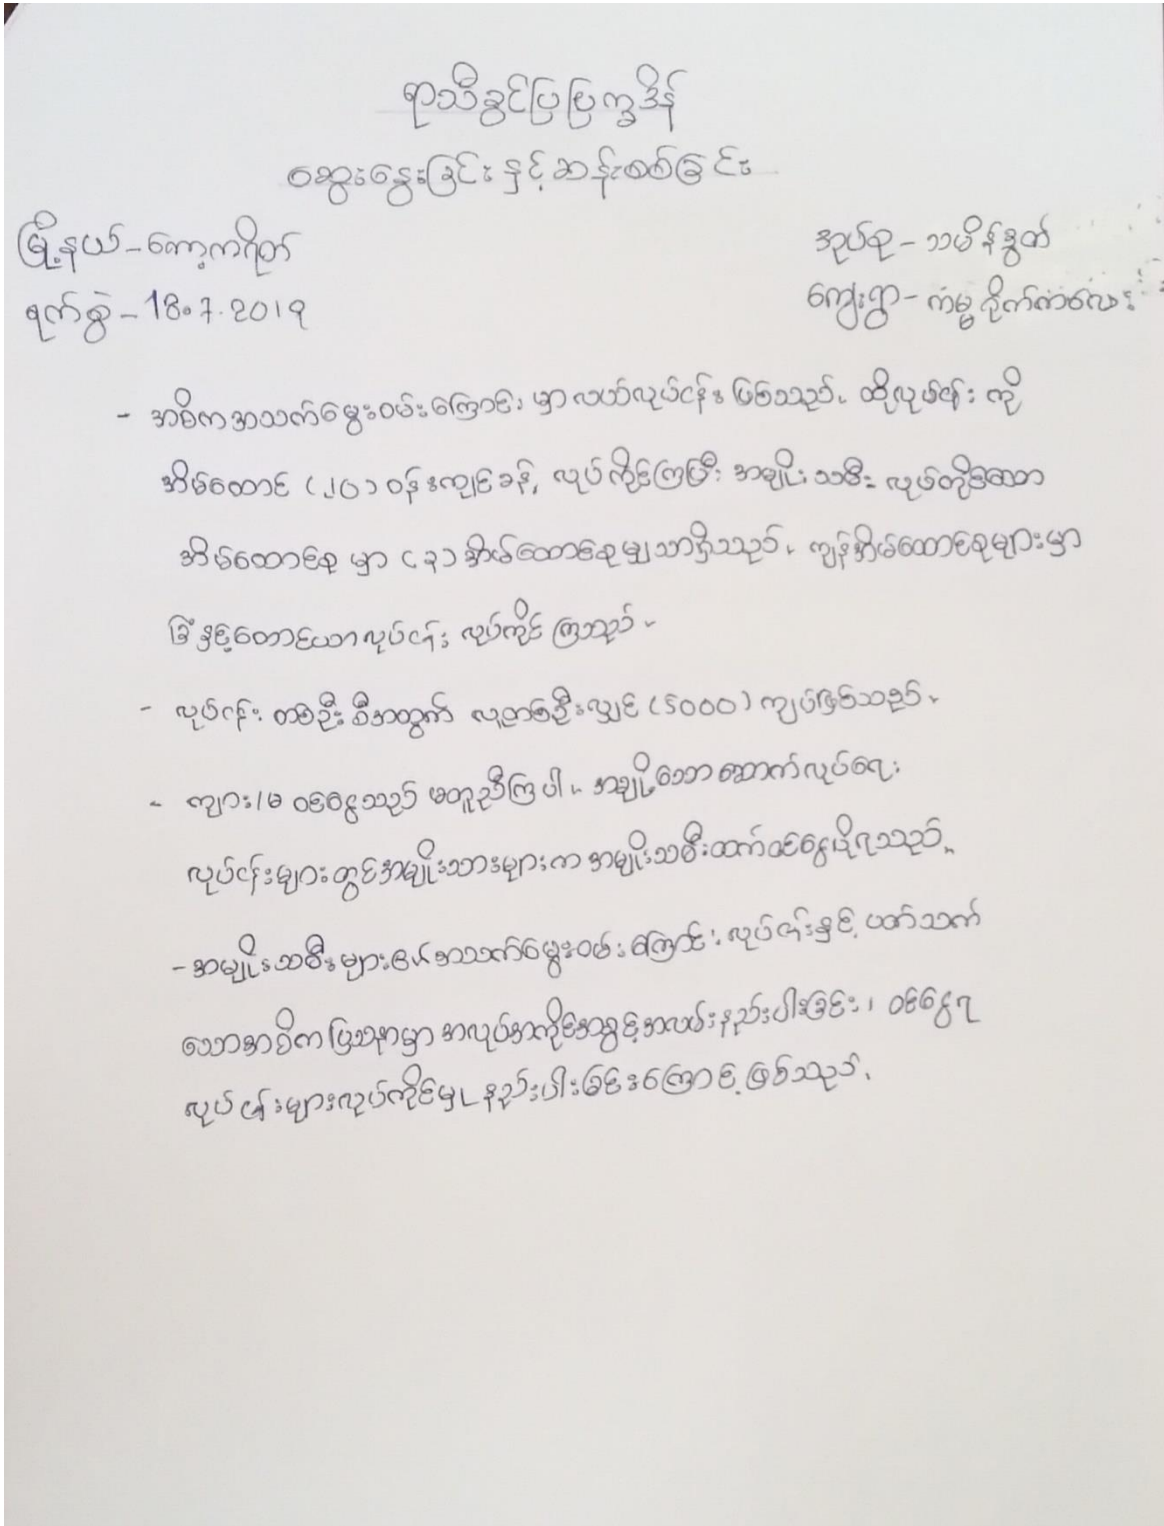 ရာသီခွင်ပြပြက္ခဒိန်
ဆွေးနွေးခြင်းနှင့်ဆန်းစစ်ခြင်း
မြို့နယ်-ကော့ကရိတ် အုပ်စု-သမိန်ဒွတ်
ရက်စွဲ-18.7.2019 ကျေးရွာ-ကံမ္မဒိုက်ကလေး
- အဓိကအသက်မွေးဝမ်းကြောင်းမှာ လယ်လုပ်ငန်းဖြစ်သည်။ ထိုလုပ်ငန်းကို
အိမ်ထောင် (၂၀) ဝန်းကျင်ခန့် လုပ်ကိုင်ကြပြီး အမျိုးသမီး လုပ်ကိုင်သော
အိမ်ထောင်စု မှာ (၃) အိမ်ထောင်စုမျှသာရှိသည်။ ကျန်အိမ်ထောင်စုများမှာ
ခြံနှင့်တောင်ယာလုပ်ငန်း လုပ်ကိုင်ကြသည်။
- လုပ်ငန်း တစ်ဦးစီအတွက် လူတစ်ဦးလျှင် (5000) ကျပ်ဖြစ်သည်။
- ကျား/မ ဝင်ငွေသည် မတူညီကြပါ။ အချို့သော ဆောက်လုပ်ရေး
လုပ်ငန်းများတွင် အမျိုးသားများက အမျိုးသမီးထက်ဝင်ငွေပိုရသည်။
- အမျိုးသမီးများ၏ အသက်မွေးဝမ်းကြောင်းလုပ်ငန်းနှင့် ပတ်သက်
သောအဓိကပြဿနာမှာ အလုပ်အကိုင်အခွင့်အလမ်းနည်းပါးခြင်း၊ ဝင်ငွေရ
လုပ်ငန်းများလုပ်ကိုင်မှု နည်းပါးခြင်းကြောင့် ဖြစ်သည်။